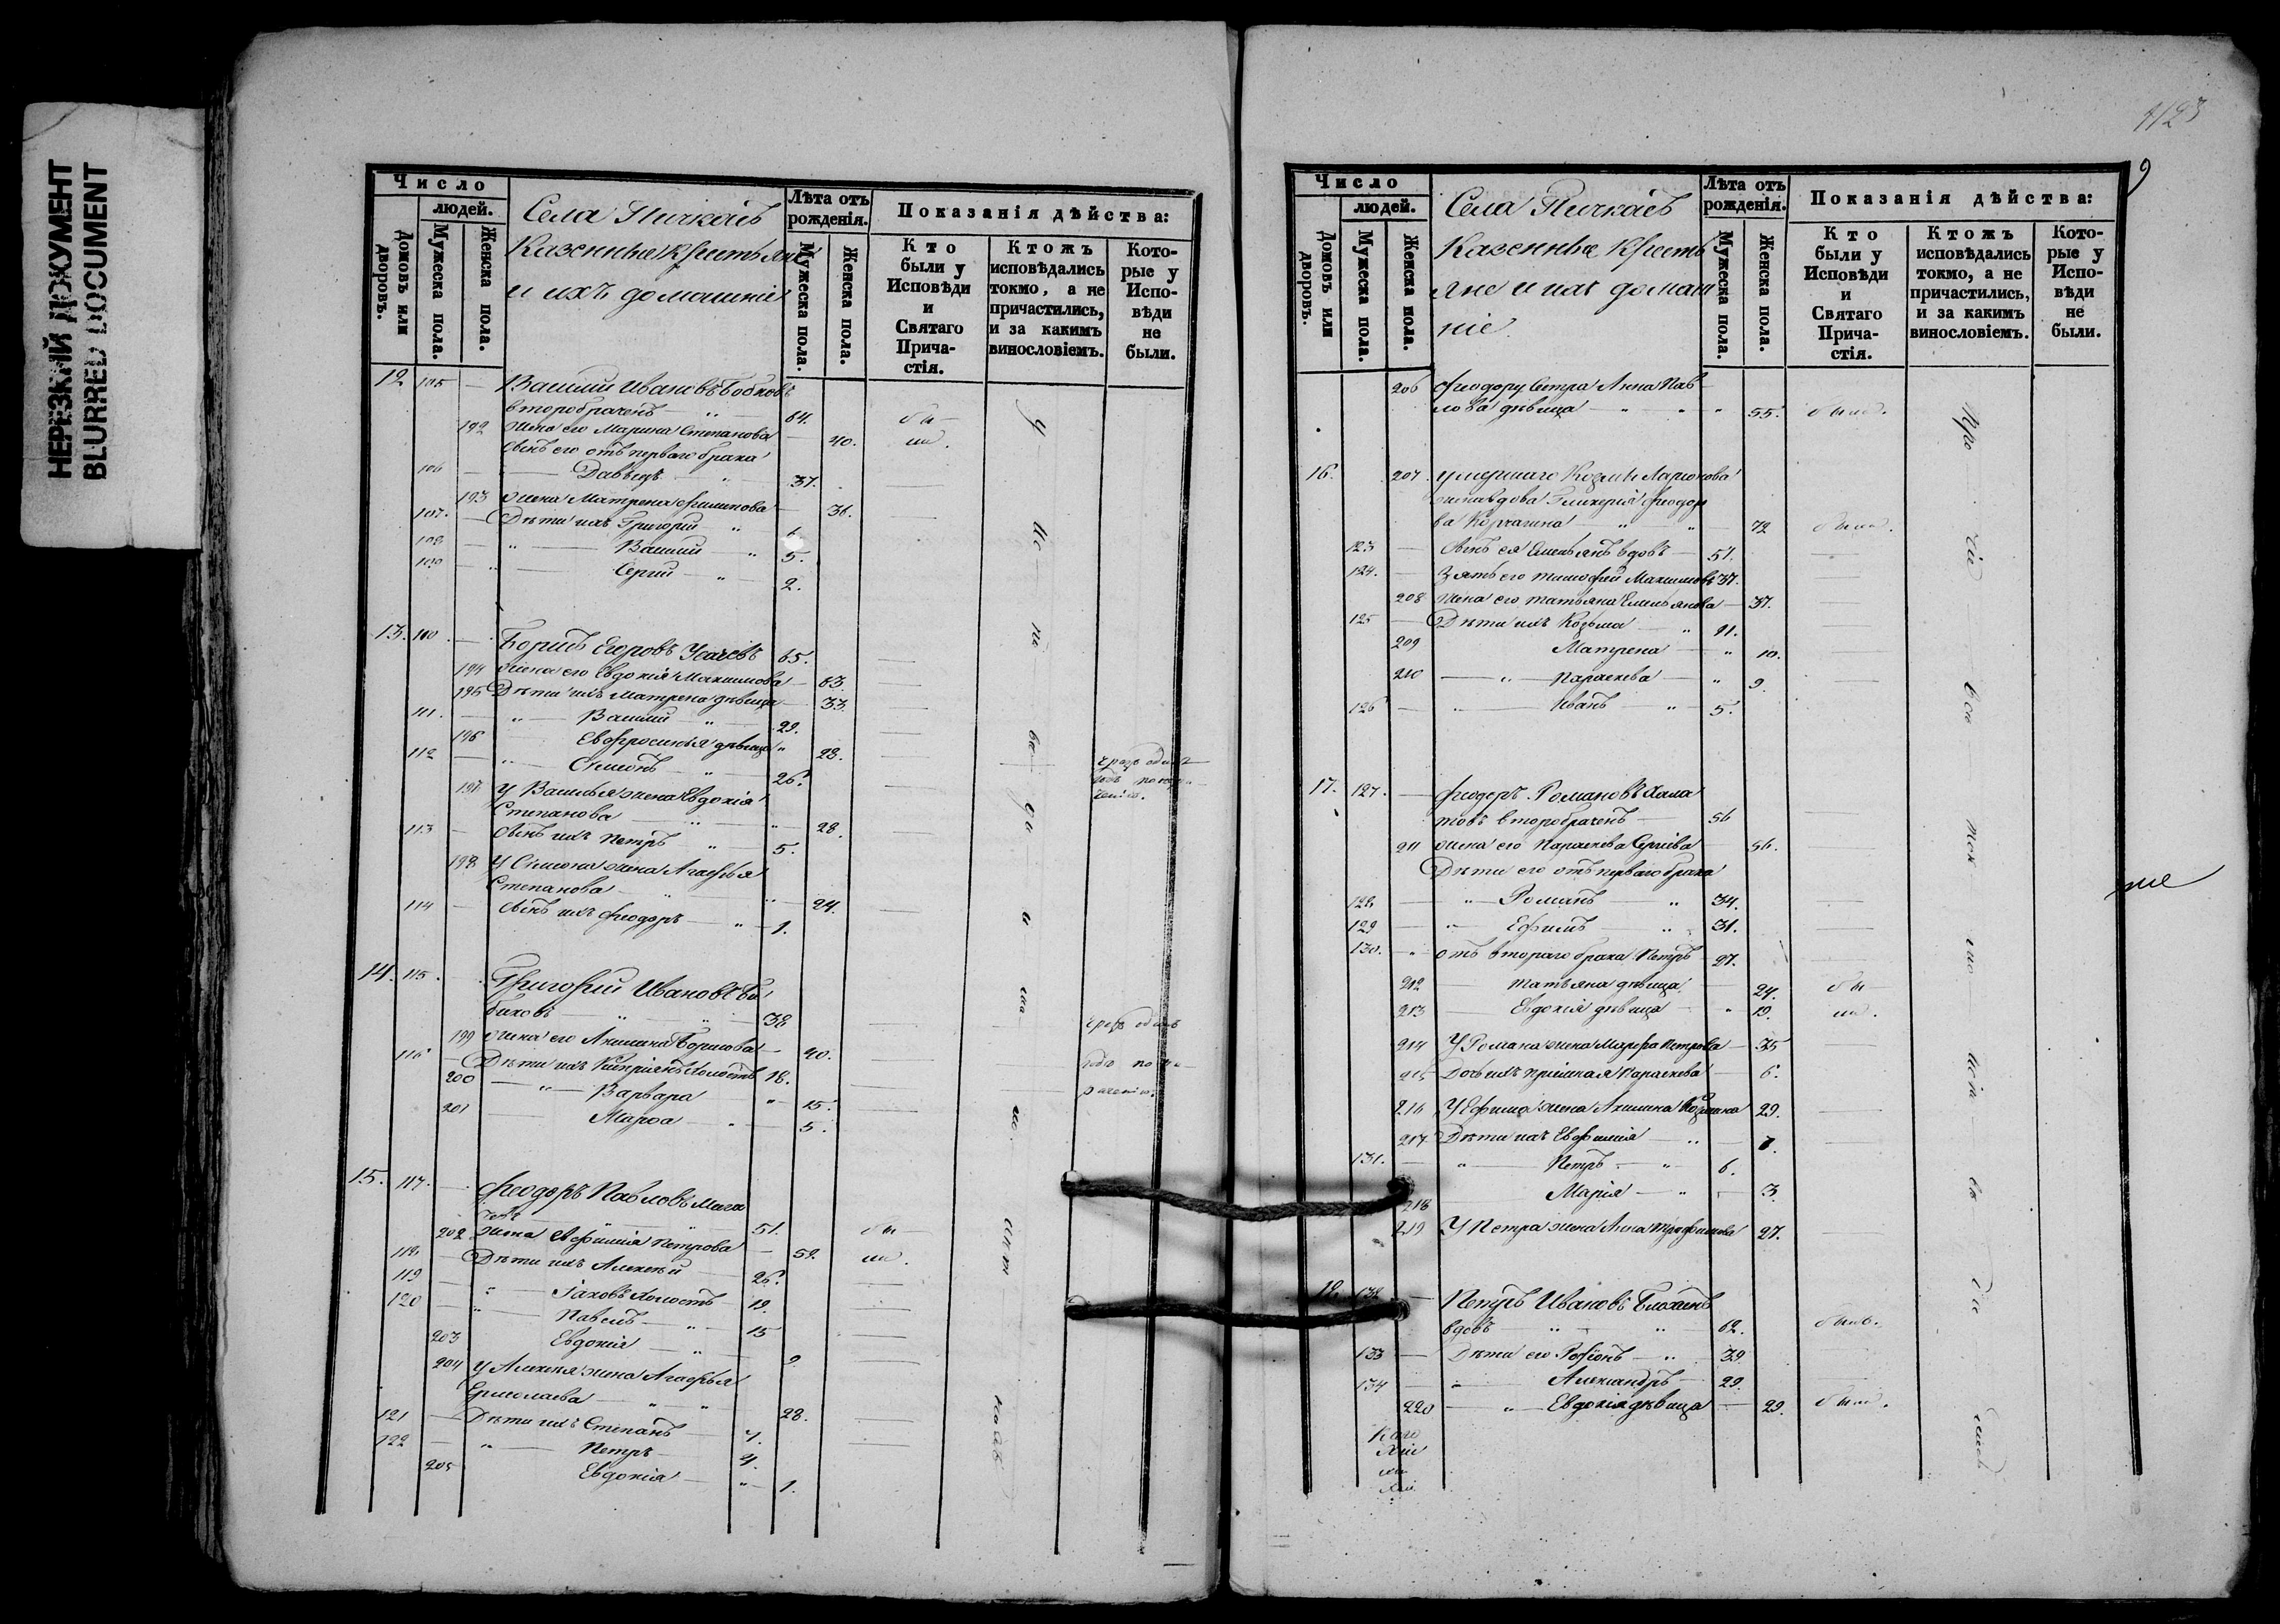 НЕРЕЗКИЙ ДОКУМЕНТ
BLURRED DOCUMENT
Число
людей.
Домовъ или дворовъ.
Мужеска пола.
Женска пола.
Села Пичкаевъ
Казенные Крестьяне
и ихъ домашніе
Лѣта отъ рожденія.
Мужеска пола.
Женска пола.
Показанія дѣйства:
Кто были у Исповѣди и Святаго Причастія.
Ктожъ исповѣдались токмо, а не причастились, и за какимъ винословіемъ.
Которые у Исповѣди не были.
12 105 — Василій Ивановъ
второбраченъ 64. бы
192 Жена его Марина Степанова 40. ли.
Сынъ его отъ перваго брака
106 Давыдъ 37.
193 Жена Матрена Филипова 36.
107. Дѣти ихъ Григорій
108 Василій 5.
109 Сергій 2.
13. 110. Борисъ Егоровъ Усачевъ 65.
194 Жена его Евдокія Максимова 63.
195 Дѣти ихъ Матрена дѣвица 33.
111. Василій 29.
196 Евфросинья дѣвица 28.
112 Симеонъ 26.
197 У Василья жена Евдокія
Степанова 28.
113 Сынъ ихъ Петръ 5.
198 У Симеона жена Агафья
Степанова 24.
114 Сынъ ихъ Феодоръ 1.
14. 115. Григорій Ивановъ Би
биковъ 38
199 Жена его Акилина Борисова 40.
116 Дѣти ихъ Кипріянъ холостъ 18.
200 Варвара 15.
201 Марѳа 5.
15. 117. Феодоръ Павловъ
51. бы
202 Жена Евфимія Петрова 52. ли.
118. Дѣти ихъ Алексѣй 26.
119 Іаковъ холостъ 19.
120 Павелъ 15
203 Евдокія 9.
204 У Алексѣя жена Агафья
Ермолаева 28.
121 Дѣти ихъ Степанъ 7.
122 Петръ 4.
205 Евдокія 1.
1123
9
Число
людей.
Домовъ или дворовъ.
Мужеска пола.
Женска пола.
Села Пичкаевъ
Казенные Кресть
яне и ихъ домаш
ніе
Лѣта отъ рожденія.
Мужеска пола.
Женска пола.
Показанія дѣйства:
Кто были у Исповѣди и Святаго Причастія.
Ктожъ исповѣдались токмо, а не причастились, и за какимъ винословіемъ.
Которые у Исповѣди не были.
206 Феодору сестра Анна Пав
лова дѣвица 55. была.
16. 207. умершаго Козмы Ларіонова
жена вдова Гликерія Феодоро
ва Корчагина 72 была.
123 Сынъ ея Емельянъ вдовъ 51.
124. Зять его Тимофей Максимовъ 37.
208 Жена его Татьяна Емельянова 37.
125 Дѣти ихъ Козьма 11.
209 Матрена 10.
210 Параскева 9.
126 Иванъ 5.
17. 127. Феодоръ Романовъ Хала
товъ второбраченъ 56
211 Жена его Параскева Сергіева 56.
Дѣти его отъ перваго брака
128 Романъ 34.
129 Ефимъ 31.
130. отъ втораго брака Петръ 27.
212 Татьяна дѣвица 24. бы
213 Евдокія дѣвица 19. ли.
214 У Романа жена Марѳа Петрова 35
215 Дочь ихъ пріемная Параскева 6.
216 У Ефима жена Акилина Козмина 29.
217 Дѣти ихъ Евфимія 7.
131. Петръ 6.
218 Марія 3.
219 У Петра жена Анна Трофимова 27.
18. 132 Петръ Ивановъ
вдовъ 62. былъ.
133 Дѣти его Родіонъ 39.
134 Александръ 29.
220 Евдокія дѣвица 29. была.